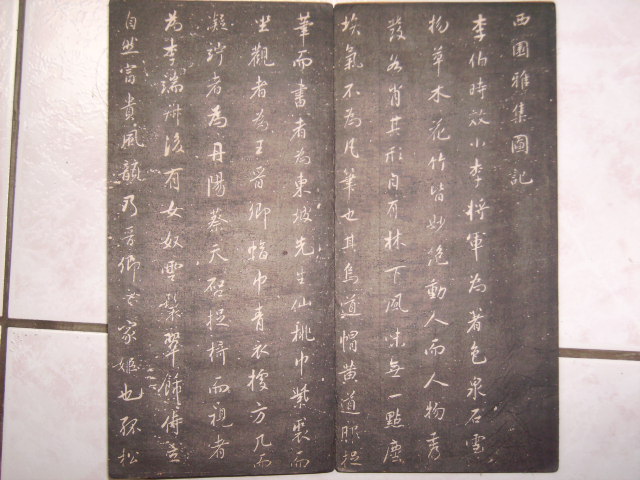 西園雅集圖記
李伯時效小李將軍為著色泉石雲
物草木花竹皆妙絶動人而人物秀
發各肖其形自有林下風味無一點塵
埃氣不為凡筆也其烏道帽黃道服捉
筆而書者為東坡先生仙桃巾紫裘而
坐觀者為王晉卿幅巾青衣據方几而
凝竚者為丹陽蔡天啓捉椅而視者
為李端叔後有女奴雲鬟翠飾倚立
自然富貴風韻乃晉卿之家姬也孤松